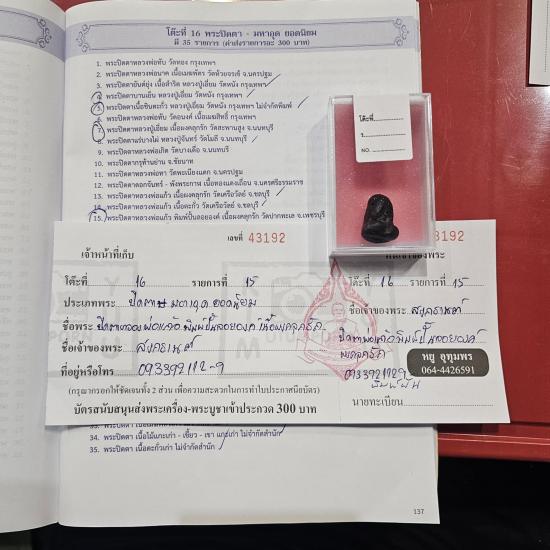 โต๊ะที่ 16 พระปิดตา - มหาอุด ยอดนิยม
มี 35 รายการ (ค่าส่งรายการละ 300 บาท)
1. พระปิดตาหลวงพ่อทับ วัดทอง กรุงเทพฯ
2. พระปิดตาหลวงพ่อนาค เนื้อเมฆพัตร วัดห้วยจรเข้ จ.นครปฐม
3. พระปิดตายันต์ยุ่ง เนื้อสำริด หลวงปู่เอี่ยม วัดหนัง กรุงเทพฯ
4. พระปิดตาบานเย็น หลวงปู่เอี่ยม วัดหนัง กรุงเทพฯ
5. พระปิดตาเนื้อชินตะกั่ว หลวงปู่เอี่ยม วัดหนัง กรุงเทพฯ ไม่จำกัดพิมพ์
6. พระปิดตาหลวงพ่อทับ วัดอนงค์ เนื้อเมฆสิทธิ์ กรุงเทพฯ
7. พระปิดตาหลวงปู่เอี่ยม เนื้อผงคลุกรัก วัดสะพานสูง จ.นนทบุรี
8. พระปิดตาแร่บางไผ่ หลวงปู่จันทร์ วัดโมลี จ.นนทบุรี
9. พระปิดตาหลวงพ่อเกิด วัดบางเดื่อ จ.นนทบุรี
10. พระปิดตากรุท้ายย่าน จ.ชัยนาท
11. พระปิดตาหลวงพ่อทา วัดพะเนียงแตก จ.นครปฐม
12. พระปิดตาดอกจันทร์ - พังพระกาฬ เนื้อทองแดงเถื่อน จ.นครศรีธรรมราช
13. พระปิดตาหลวงพ่อแก้ว เนื้อผงคลุกรัก วัดเครือวัลย์ จ.ชลบุรี
14. พระปิดตาหลวงพ่อแก้ว เนื้อตะกั่ว วัดเครือวัลย์ จ.ชลบุรี
15. พระปิดตาหลวงพ่อแก้ว พิมพ์ปั้นลอยองค์ เนื้อผงคลุกรัก วัดปากทะเล จ.เพชรบุรี
โต๊ะที่
ร.
NO.
เลขที่ 43192
43192
เจ้าหน้าที่เก็บ
โต๊ะที่ 16 รายการที่ 15
ประเภทพระ ปิดตา มหาอุด ยอดนิยม
ชื่อพระ ปิดตาหลวงพ่อแก้ว พิมพ์ปั้นลอยองค์ เนื้อผงคลุกรัก
ชื่อเจ้าของพระ สงกรานต์
ที่อยู่หรือโทร 093392112-9
(กรุณากรอกให้ชัดเจนทั้ง 2 ส่วน เพื่อความสะดวกในการทำใบประกาศนียบัตร)
บัตรสนับสนุนส่งพระเครื่อง-พระบูชาเข้าประกวด 300 บาท
โต๊ะที่ 16 รายการที่ 15
ชื่อเจ้าของพระ สงกรานต์
ปิดตาหลวงพ่อแก้วพิมพ์ปั้นลอยองค์
ผงคลุกรัก
093392112-9
หมู อุทุมพร
064-4426591
นายทะเบียน
34. พระปิดตา เนื้อไม้แกะเก่า - เขี้ยว - เขา แกะเก่า ไม่จำกัดสำนัก
35. พระปิดตา เนื้อตะกั่วเก่า ไม่จำกัดสำนัก
137